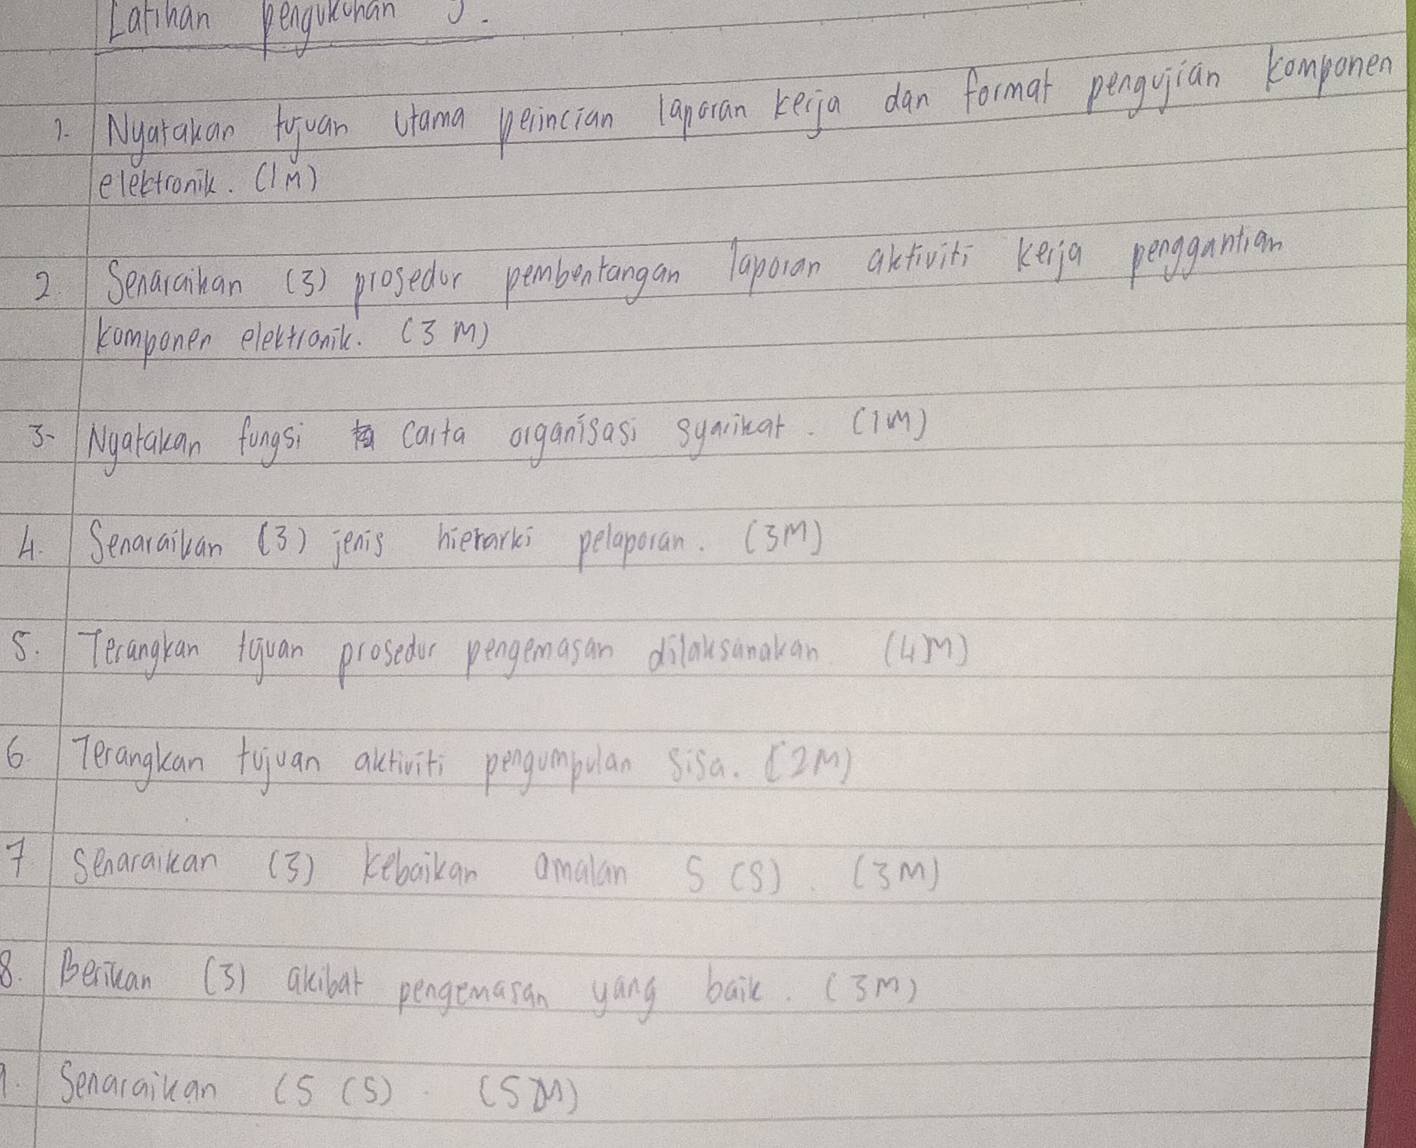 Latihan pengukuhan 5.
1. Nyatakan tujuan utama perincian laporan kerja dan format pengujian komponen
elektronik. (1M)
2 Senaraikan (3) prosedur pembentangan laporan aktiviti kerja penggantian
komponen elektronik. (3 M)
3- Nyatakan fungsi carta organisasi syarikat. (1M)
4. Senaraikan (3) jenis hierarki pelaporan. (3M)
5. Terangkan tujuan prosedur pengemasan dilaksanakan (4M)
6 Terangkan tujuan aktiviti pengumpulan sisa. (2M)
7 Senaraikan (3) kebaikan amalan 5 (S). (3M)
8. Berikan (3) akibat pengemasan yang baik. (3M)
9. Senaraikan (5 (S). (5M)